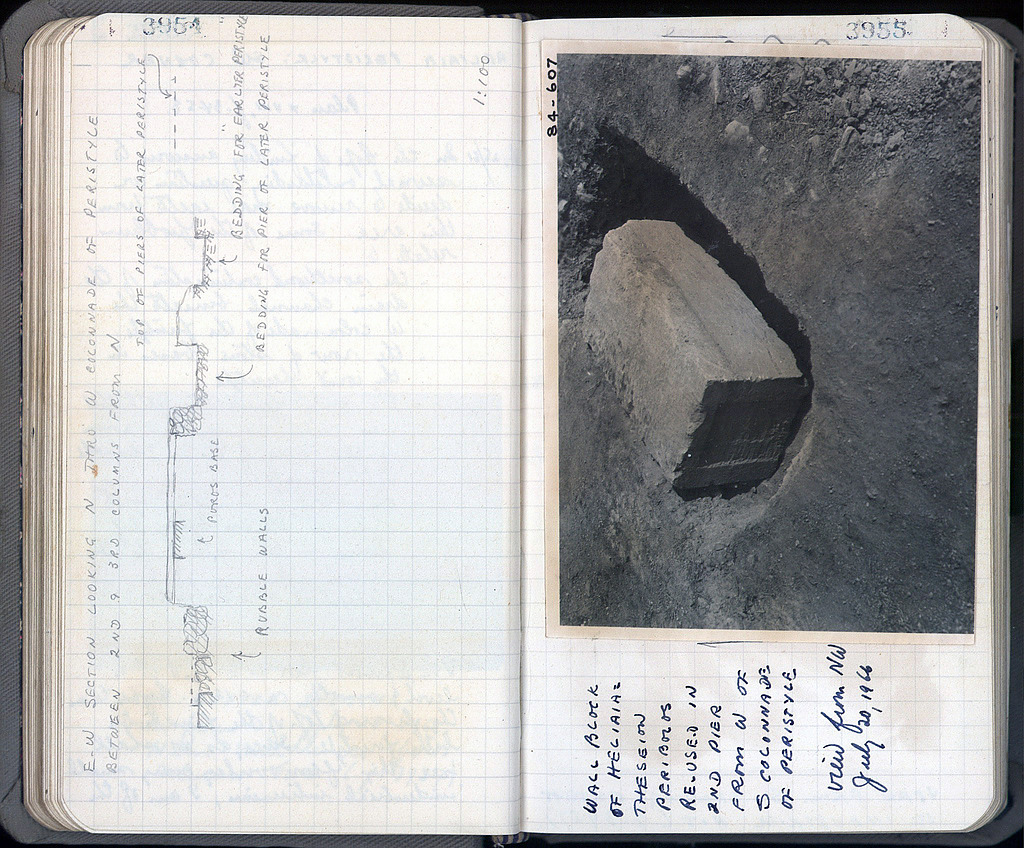 3954
E-W SECTION LOOKING N THRO W COLONNADE OF PERISTYLE
BETWEEN 2ND & 3RD COLUMNS FROM N
TOP OF PIERS OF LATER PERISTYLE
PUROS BASE
BEDDING FOR EARLIER PERISTYLE
BEDDING FOR PIER OF LATER PERISTYLE
RUBBLE WALLS
1:100
3955
84-607
WALL BLOCK
OF HELIAIA=
THESEION
PERIBOLOS
REUSED IN
2ND PIER
FROM W OF
S COLONNADE
OF PERISTYLE
view from NW
July 20, 1966